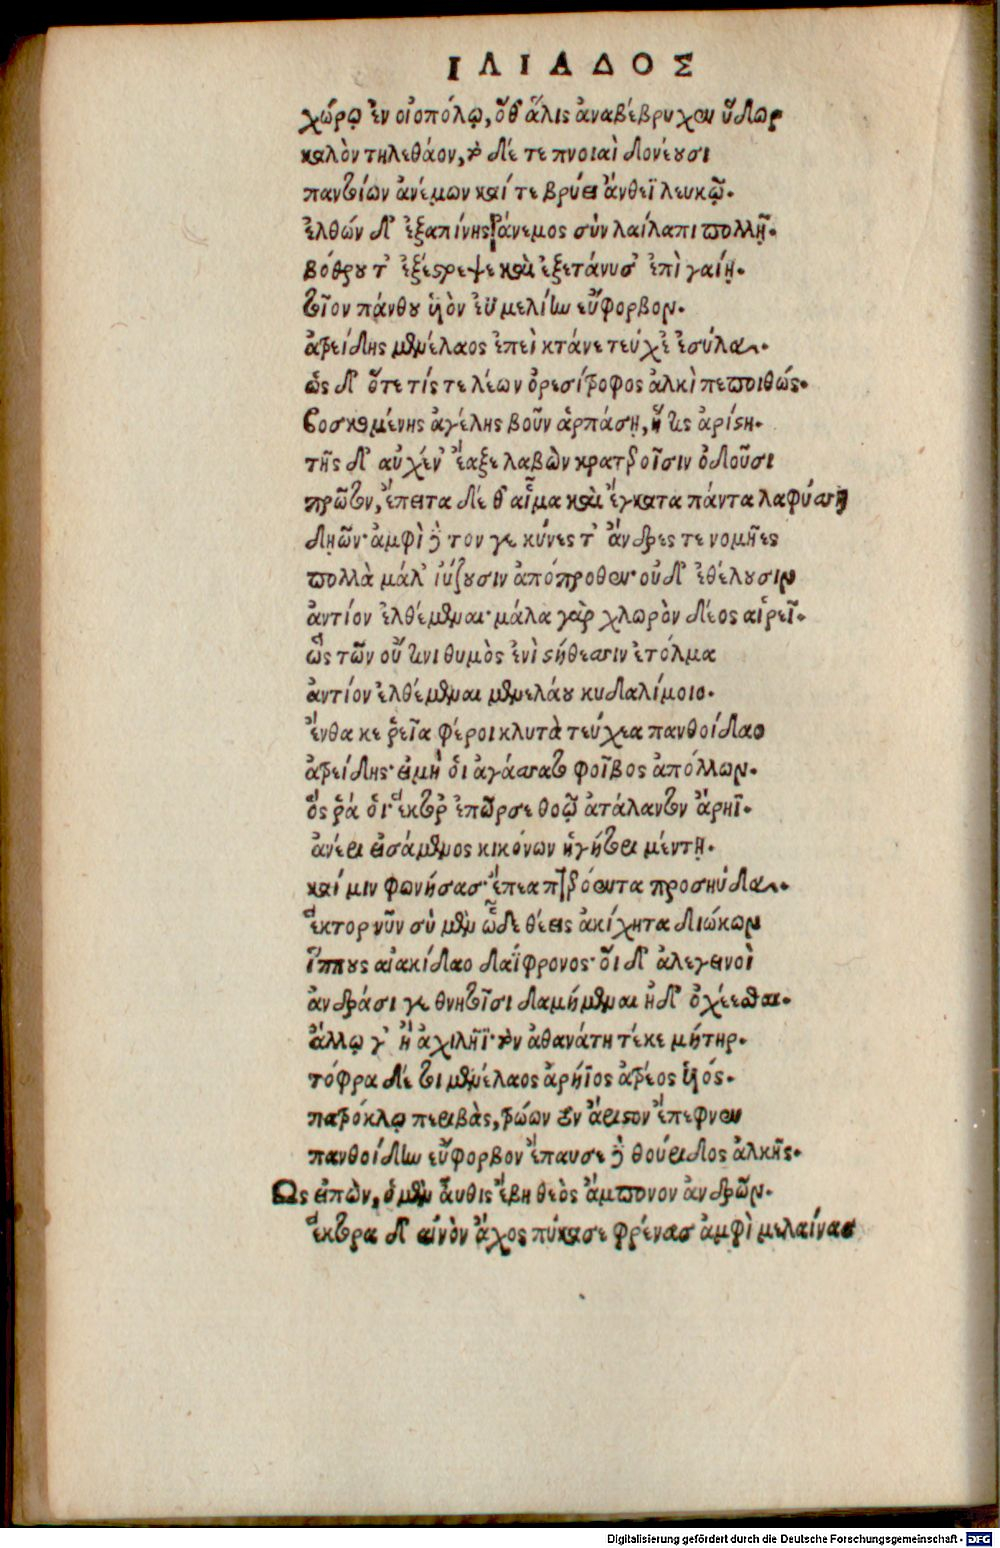 ΙΛΙΑΔΟΣ
χώρῳ ἐν οἰοπόλῳ, ὅθ' ἅλις ἀναβέβρυχεν ὕδωρ
καλὸν τηλεθάον, τὸ δέ τε πνοιαὶ δονέουσι
παντοίων ἀνέμων καί τε βρύει ἄνθεϊ λευκῷ.
ἐλθών δ' ἐξαπίνης ἄνεμος σὺν λαίλαπι πολλῇ.
βόθρου τ' ἐξέστρεψε καὶ ἐξετάνυσ' ἐπὶ γαίῃ.
τοῖον πάνθου ὑὸν ἐϋμελίην εὔφορβον.
ἀτρείδης μενέλαος ἐπεὶ κτάνε τεύχε' ἐσύλα.
ὡς δ' ὅτε τίς τε λέων ὀρεσίτροφος ἀλκὶ πεποιθώς.
βοσκομένης ἀγέλης βοῦν ἁρπάσῃ, ἥ τις ἀρίστη.
τῆς δ' αὐχέν' ἔαξε λαβὼν κρατεροῖσιν ὀδοῦσι
πρῶτον, ἔπειτα δέ θ' αἷμα καὶ ἔγκατα πάντα λαφύσσει
δῃῶν· ἀμφὶ δὲ τόν γε κύνες τ' ἄνδρες τε νομῆες
πολλὰ μάλ' ἰύζουσιν ἀπόπροθεν· οὐδ' ἐθέλουσιν
ἀντίον ἐλθέμεναι· μάλα γὰρ χλωρὸν δέος αἱρεῖ.
ὣς τῶν οὔ τινι θυμὸς ἐνὶ στήθεσσιν ἐτόλμα
ἀντίον ἐλθέμεναι μενελάου κυδαλίμοιο.
ἔνθα κε ῥεῖα φέροι κλυτὰ τεύχεα πανθοίδαο
ἀτρείδης· εἰ μή ὁι ἀγάσσατο φοῖβος ἀπόλλων.
ὅς ῥά ὁι ἕκτορ' ἐπῶρσε θοῷ ἀτάλαντον ἄρηϊ.
ἀνέρι εἰσάμενος κικόνων ἡγήτορι μέντῃ.
καί μιν φωνήσας ἔπεα πτερόεντα προσηύδα.
ἕκτορ νῦν σὺ μὲν ὧδε θέεις ἀκίχητα διώκων
ἵππους αἰακίδαο δαΐφρονος· ὁι δ' ἀλεγεινοὶ
ἀνδράσι γε θνητοῖσι δαμήμεναι ἠδ' ὀχέεσθαι.
ἄλλῳ γ' ἢ ἀχιλῆϊ· τὸν ἀθανάτη τέκε μήτηρ.
τόφρα δέ τοι μενέλαος ἀρήϊος ἀτρέος ὑιός.
πατρόκλῳ περιβὰς, τρώων τὸν ἄριστον ἔπεφνεν
πανθοίδην εὔφορβον ἔπαυσε δὲ θούριδος ἀλκῆς.
Ὣς εἰπὼν, ὁ μὲν αὖθις ἔβη θεὸς ἄμπονον ἀνδρῶν.
ἕκτορα δ' αἰνὸν ἄχος πύκασε φρένας ἀμφὶ μελαίνας
Digitalisierung gefördert durch die Deutsche Forschungsgemeinschaft - DFG